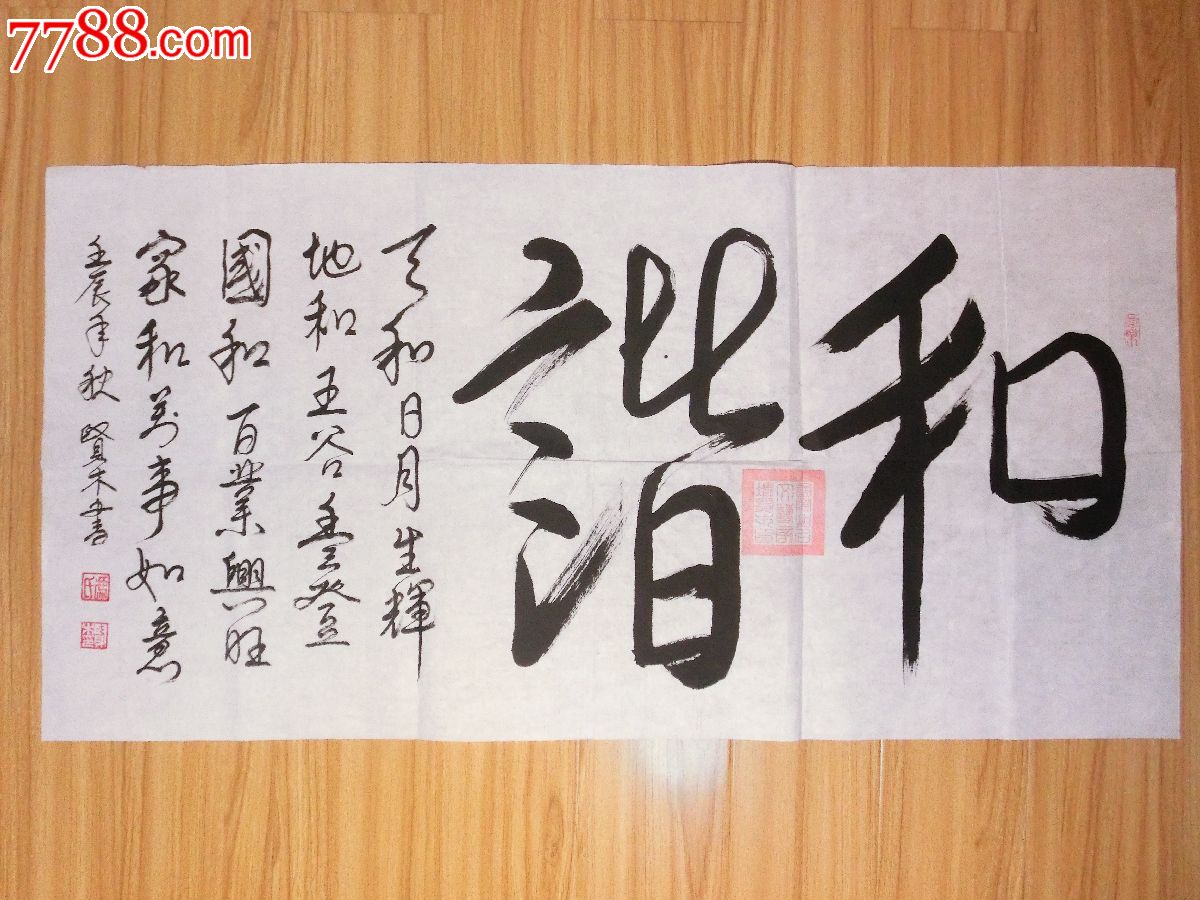 7788.com
和諧
天和日月生輝
地和五谷豊登
國和百業興旺
家和萬事如意
壬辰年秋 賢木書